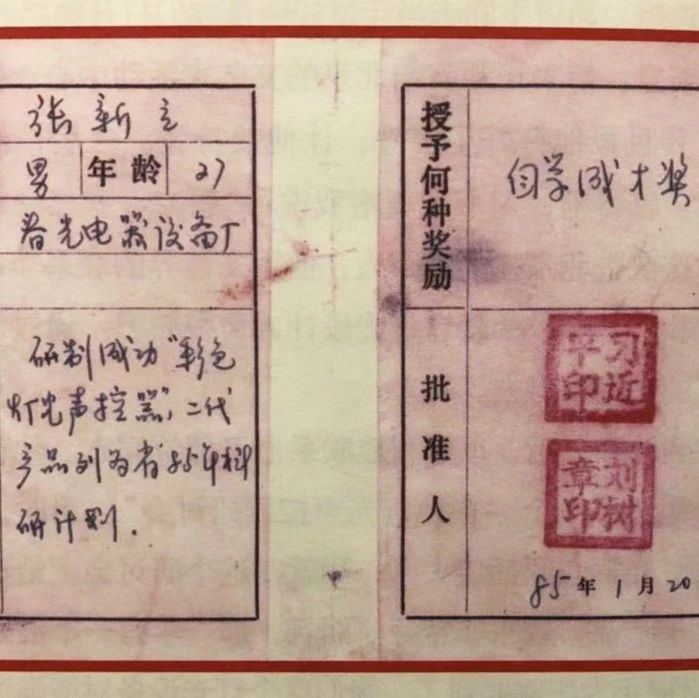 张新立
男 年龄 27
春光电器设备厂
研制成功“彩色
灯光声控器”，二代
产品列为省85年科
研计划.
授予何种奖励
自学成才奖
批准人
习近平印
刘树章印
85年1月20